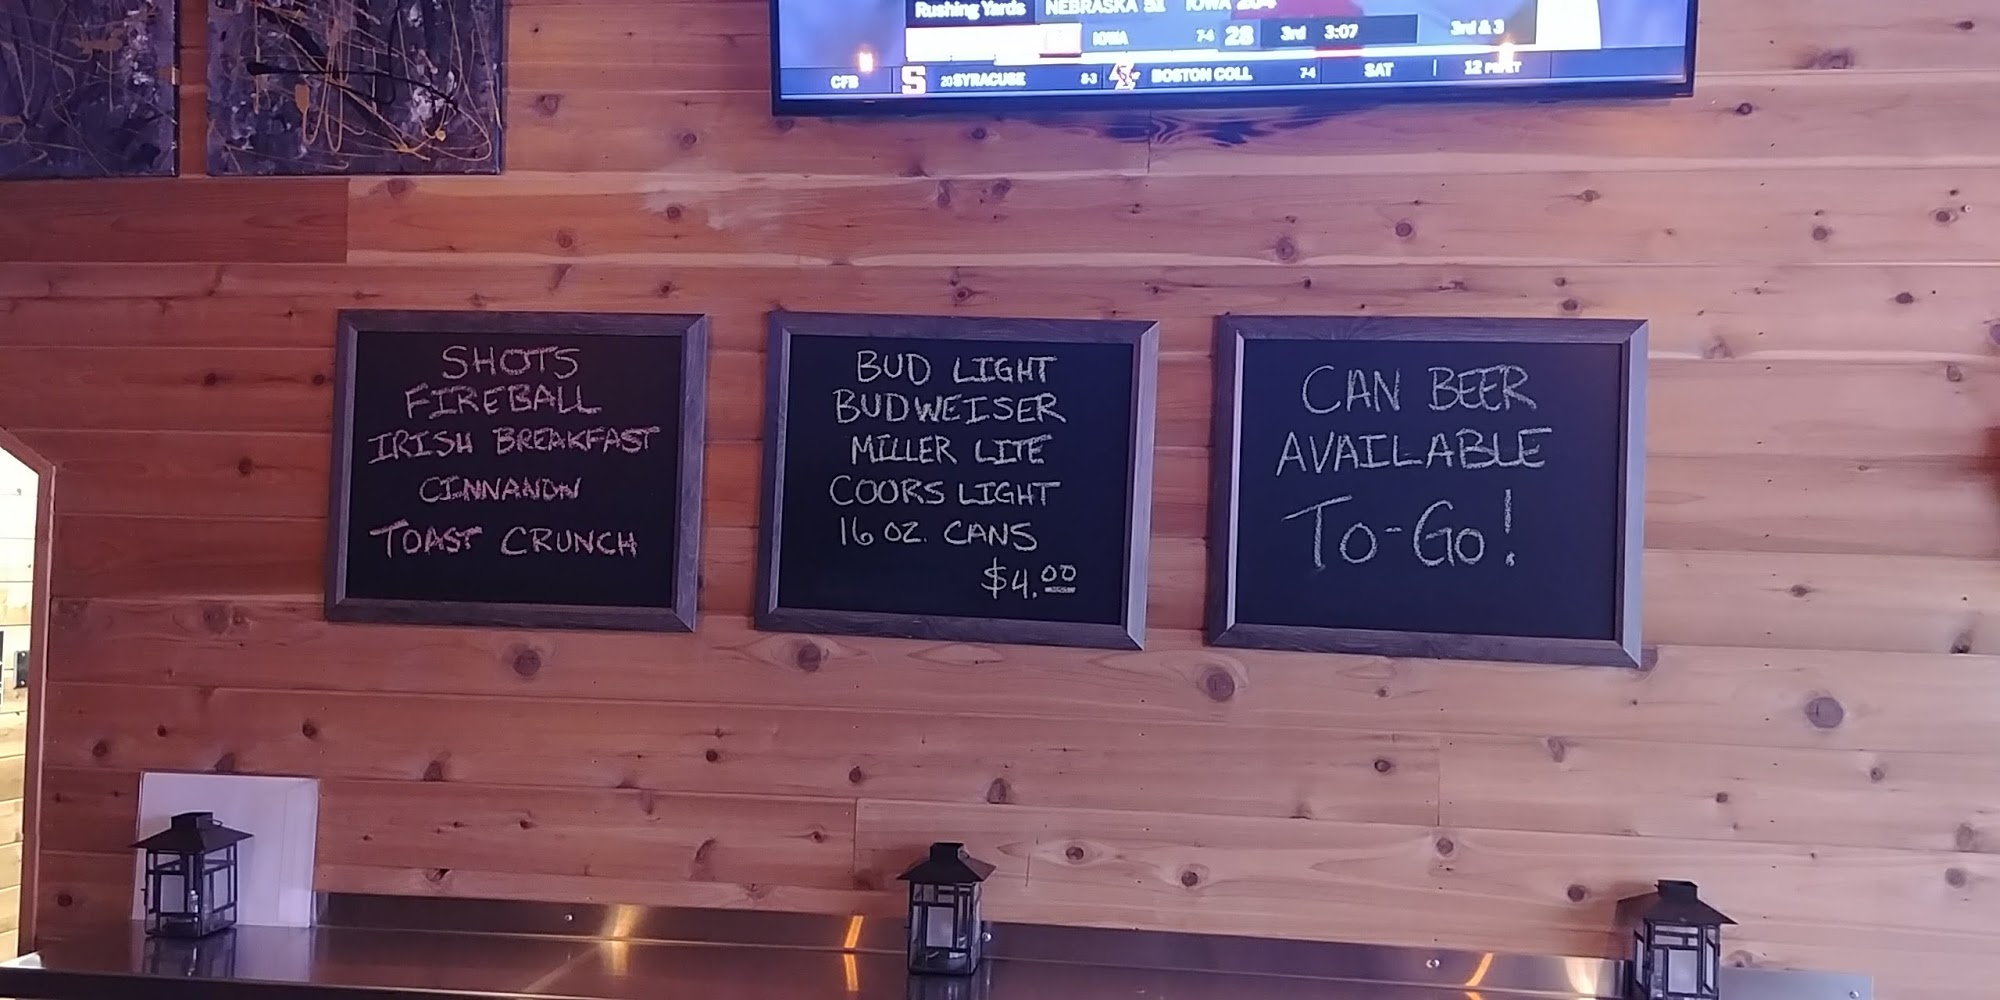 Rushing Yards NEBRASKA 51 IOWA 204
IOWA 7-4 28 3rd 3:07 3rd & 3
CFB S 20 SYRACUSE 8-3 BOSTON COLL 7-4 SAT 12 PM ET
SHOTS
FIREBALL
IRISH BREAKFAST
CINNANON
TOAST CRUNCH
BUD LIGHT
BUDWEISER
MILLER LITE
COORS LIGHT
16 OZ. CANS
$4.00
CAN BEER
AVAILABLE
TO-GO!